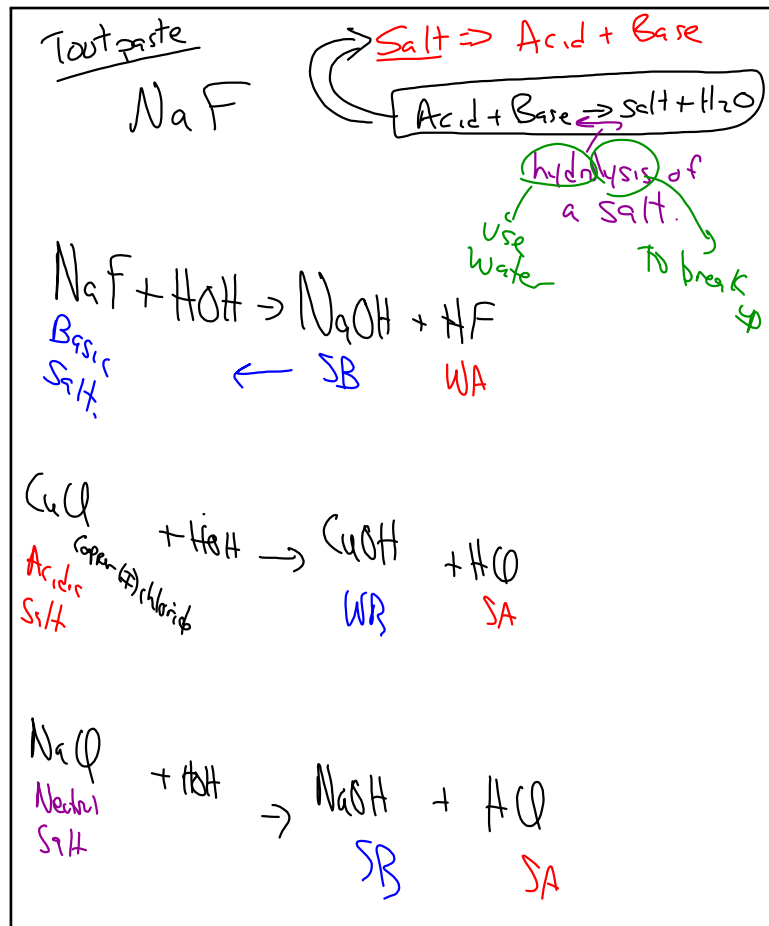 Toutpaste
NaF
Salt ⇒ Acid + Base
Acid + Base → Salt + H2O
hydrolysis of
a salt.
Use
Water
To break
up
NaF + HOH → NaOH + HF
Basic
Salt.
← SB
WA
CuCl + HOH → CuOH + HCl
Copper (I) chloride
Acidic
Salt
WB
SA
NaCl + HOH → NaOH + HCl
Neutral
Salt
SB
SA